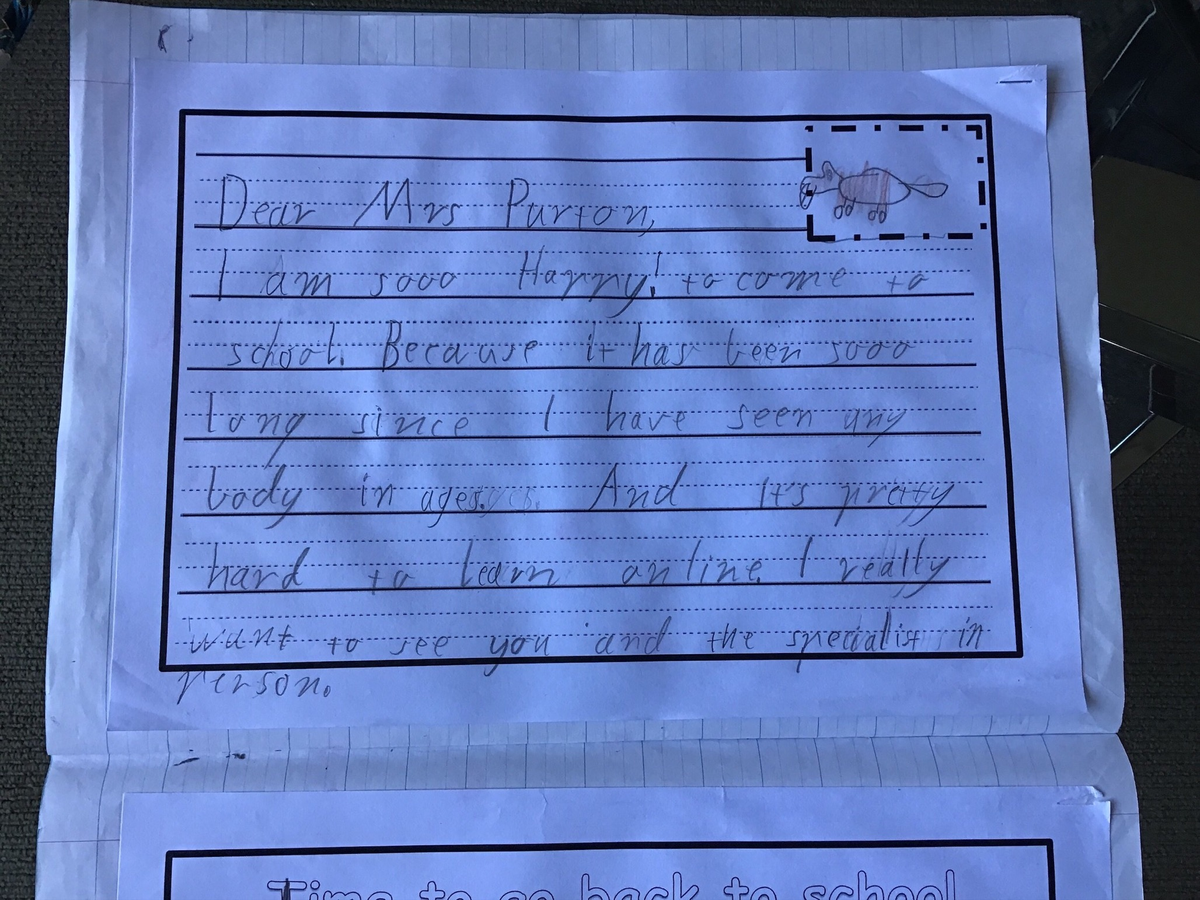 Dear Mrs Purton,
I am sooo Happy! to come to
school. Because it has been sooo
long since I have seen any
body in ages. And It's pretty
hard to learn online. I really
want to see you and the specialist in
person.
Time to go back to school